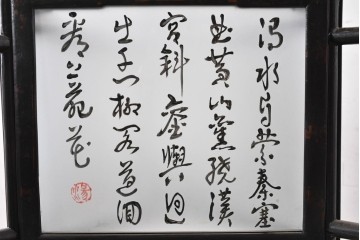 渭水自縈秦塞
曲黄山舊繞漢
宮斜鑾輿迥
出千門柳閣道迴
看上苑花